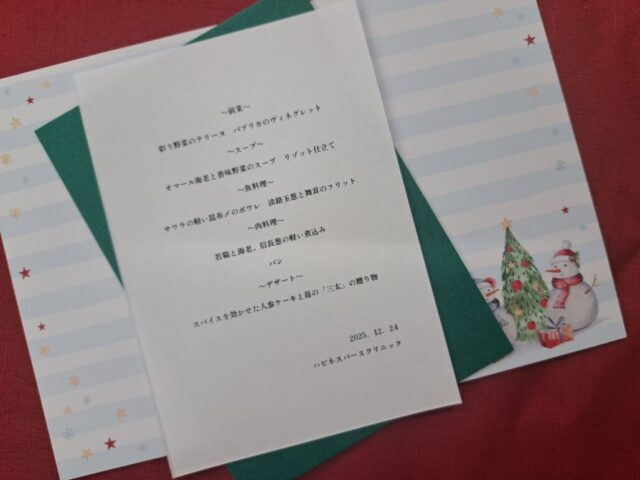 ～前菜～
彩り野菜のテリーヌ　パプリカのヴィネグレット
～スープ～
オマール海老と香味野菜のスープ　リゾット仕立て
～魚料理～
サワラの軽い昆布〆のポワレ　淡路玉葱と舞茸のフリット
～肉料理～
若鶏と海老、信長葱の軽い煮込み
パン
～デザート～
スパイスを効かせた人参ケーキと苺の「三太」の贈り物
2025. 12. 24
ハピネスバースクリニック